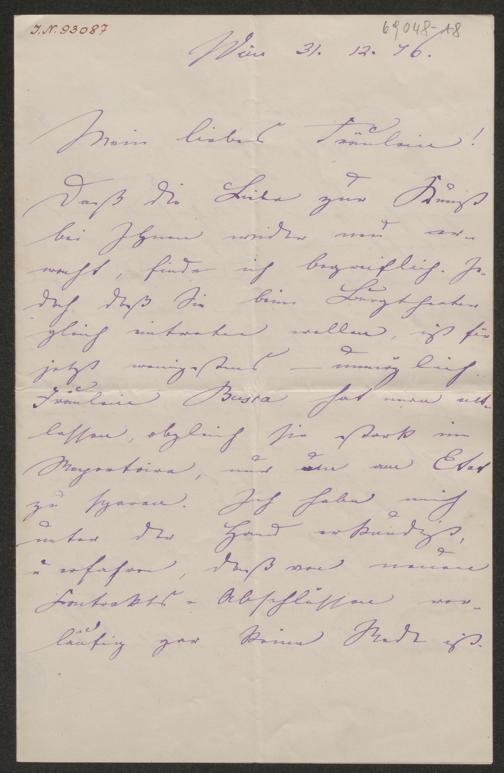 I.N. 93087
69048-A8
Wien 31. 12. 76.
Mein liebes Fräulein!
Daß die Liebe zur Kunst
bei Ihnen wieder neu er-
wacht, finde ich begreiflich. Je-
doch daß Sie beim Burgtheater
gleich eintreten wollen, ist für
jetzt wenigstens – unmöglich.
Fräulein Buska hat man ent-
lassen, obgleich sie stark im
Repertoire, nur um am Etat
zu sparen. Ich habe mich
unter der Hand erkundigt,
u erfahren, daß von neuen
Contrakts-Abschlüssen vor-
läufig gar keine Rede ist.